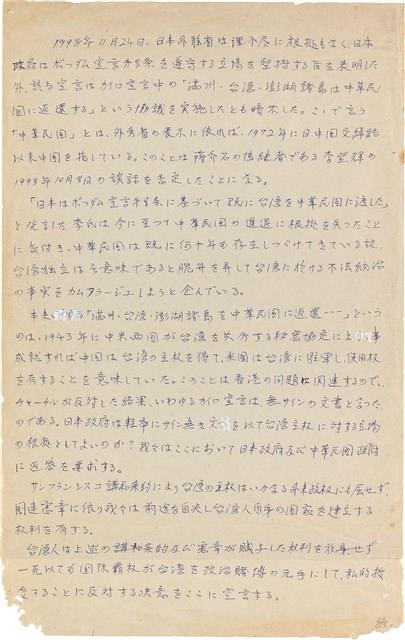 1998年11月24日、日本外務省は理不尽に根拠もなく、日本
政府はポツダム宣言第8条を遵守する立場を堅持する旨を表明した
外、該る宣言はカイロ宣言中の「満州・台湾・澎湖諸島は中華民
国に返還する」という協議を実施したとも暗示した。ここで言う
「中華民国」とは、外務省の表示に依れば、1972年に日中国交締結
以来中国を指している。このことは蒋介石の後継者である李登輝の
1998年10月8日の談話を否定したことになる。
「日本はポツダム宣言第8条に基づいて既に台湾を中華民国に渡した」
と発言した李氏は今に至って中華民国の進退に根拠を失ったこと
に気付き、中華民国は既に何十年も存在しつづけてきている故、
台湾独立は無意味であると詭弁を弄して台湾に於ける不法統治
の事実をカムフラージュしようと企んでいる。
本来「満州・台湾・澎湖諸島を中華民国に返還---」という
のは、1943年に中米両国が台湾を共分する秘密協定により事
成就すれば中国は台湾の主权を得て、米国は台湾に駐軍し、使用权
を有することを意味していた。このことは香港の問題に関連するので、
チャーチルが反対した結果、いわゆるカイロ宣言は無サインの文書となった
のである。日本政府は軽率にサイン無き文書を以て台湾主权に対する立場
の根拠としてよいのか？我々はここにおいて日本政府及び中華民国政府
に返答を要求する。
サンフランシスコ講和条約により台湾の主权はいかなる外来政权にも属せず、
関連憲章に依り我々は前途を自決し台湾人自身の国家を建立する
权利を有する。
台湾人は上述の講和条約及び憲章が賦予した权利を放棄せず
一死以ても国際覇权が台湾を政治賭博の元手にして、私的授
受することに反対する決意をここに宣言する。